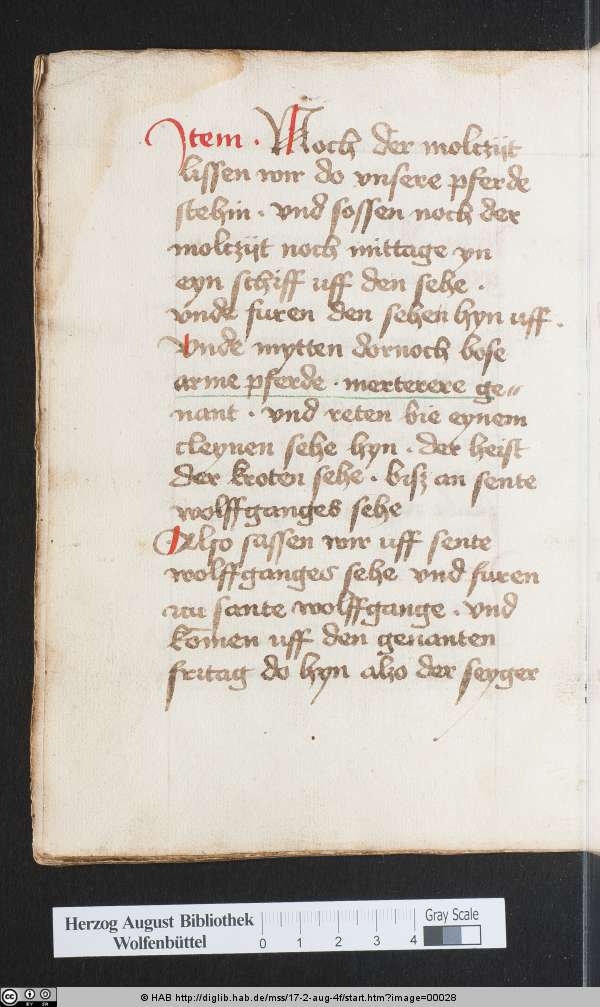 Item · Noch der molczijt
lissen wir do vnsere pferde
stehin · vnd sossen noch der
molczijt noch mittage yn
eyn schiff uff den sehe ·
vnde furen den sehen hyn uff ·
Vnde mytten dornoch bose
arme pferde · merterere ge〃
nant · vnd reten bie eynem
cleynen sehe hyn · der heist
der kroten sehe · bisz an sente
wolffganges sehe
Also sassen wir uff sente
wolffganges sehe vnd furen
zcu sante wolffgange · vnd
kōmen uff den genanten
fritag do hyn alzo der seyger
Herzog August Bibliothek
Wolfenbüttel
0 1 2 3 4
Gray Scale
© HAB http://diglib.hab.de/mss/17-2-aug-4f/start.htm?image=00028